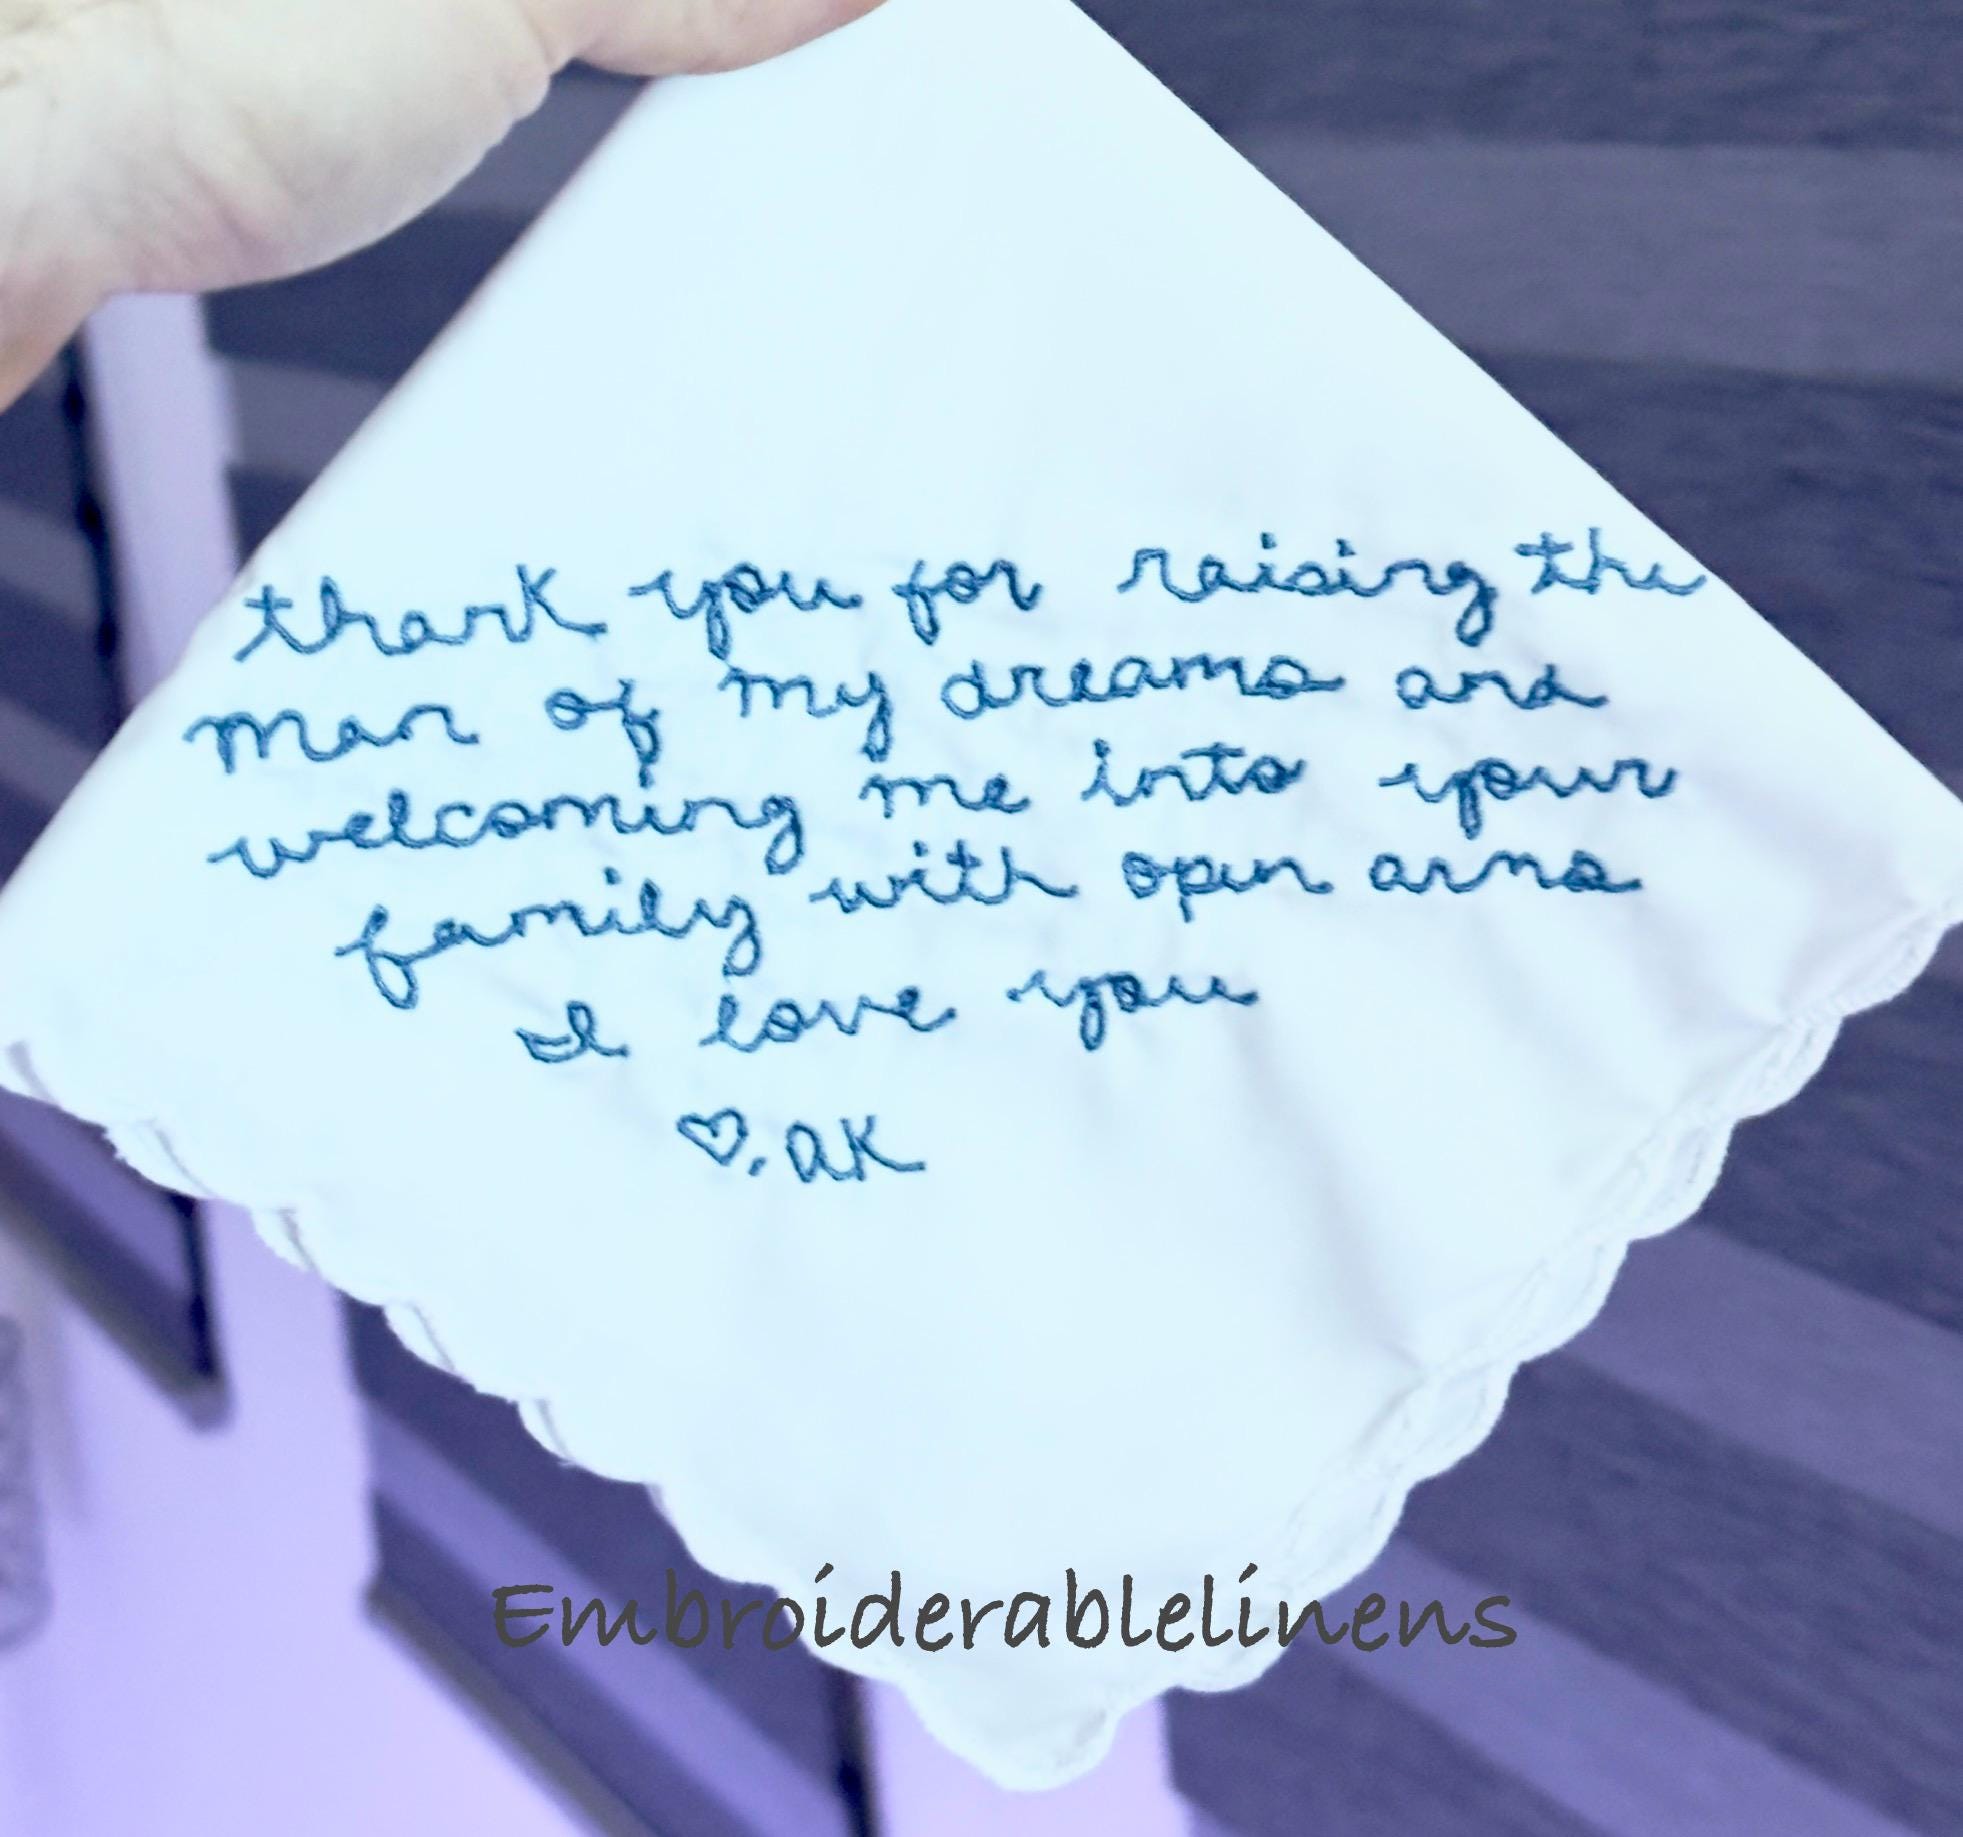 thank you for raising the
man of my dreams and
welcoming me into your
family with open arms
I love you
♡, AK
Embroiderablelinens